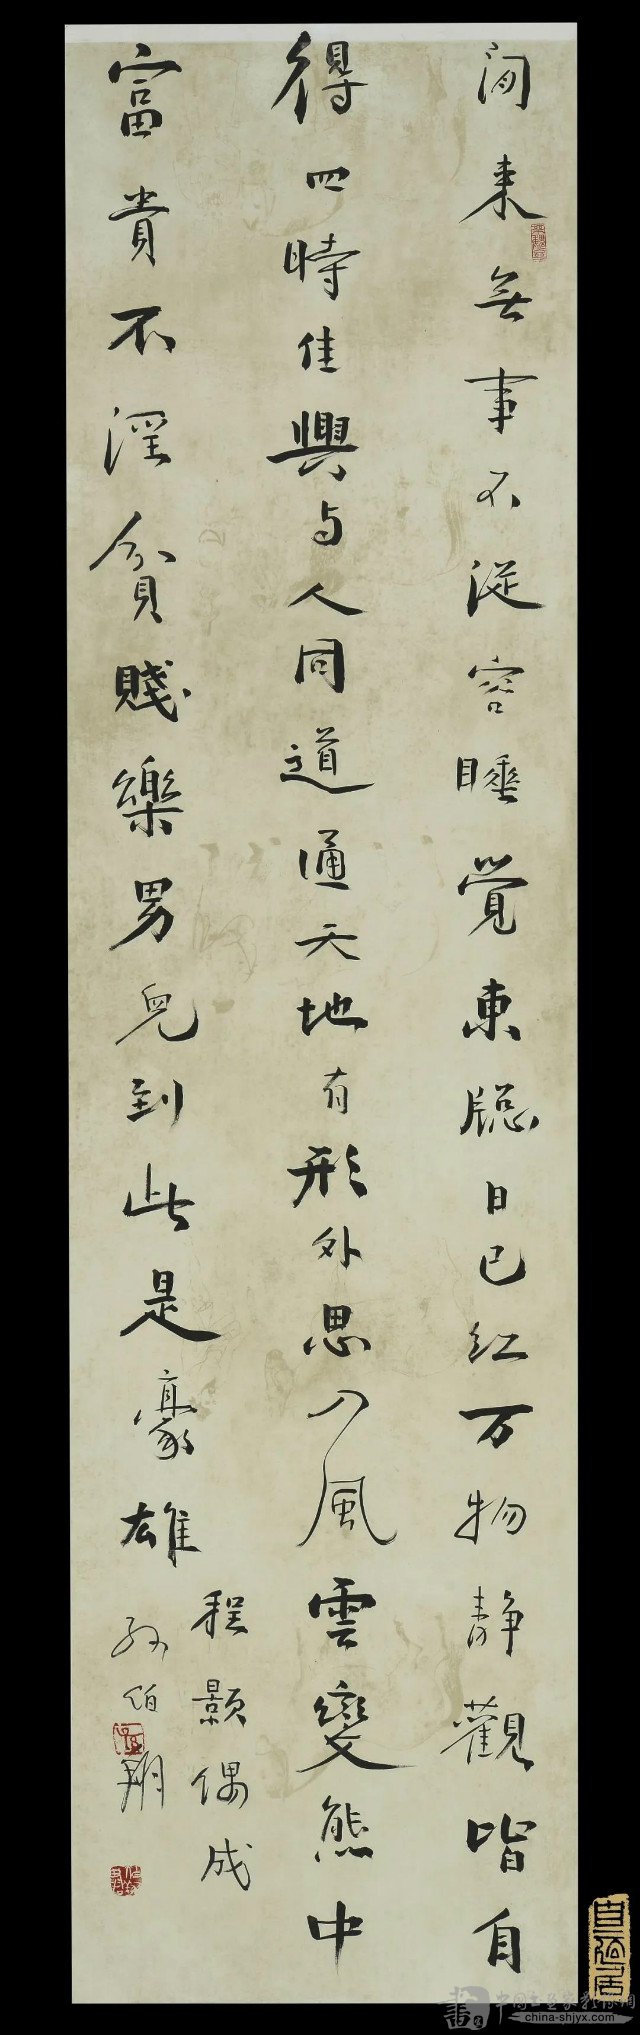 闲来無事不從容睡覺東牕日已红万物静觀皆自
得四時佳興与人同道通天地有形外思入風雲變態中
富貴不淫貧賤樂男兒到此是豪雄
程顥偶成
孙伯翔
中国书画家影像网
china-shjyx.com